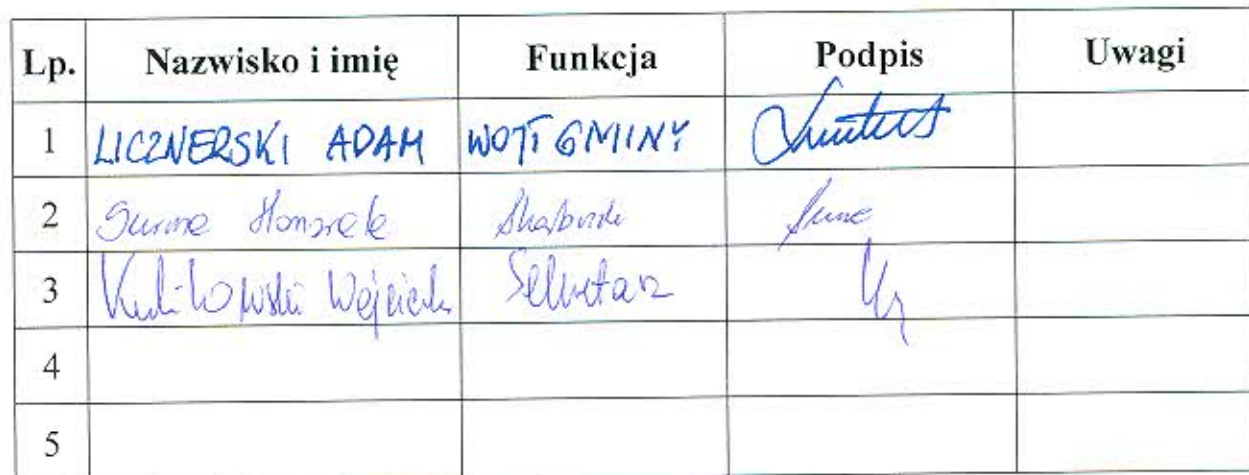 Lp. Nazwisko i imię Funkcja Podpis Uwagi
1 LICZNERSKI ADAM WÓJT GMINY
2 Surma
3 Kulikowski Wojciech Sekretarz
4
5